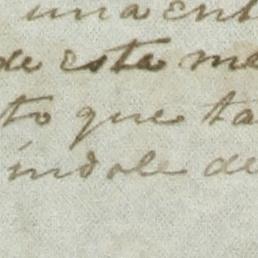 una ent
de este me
to que ta
índole de